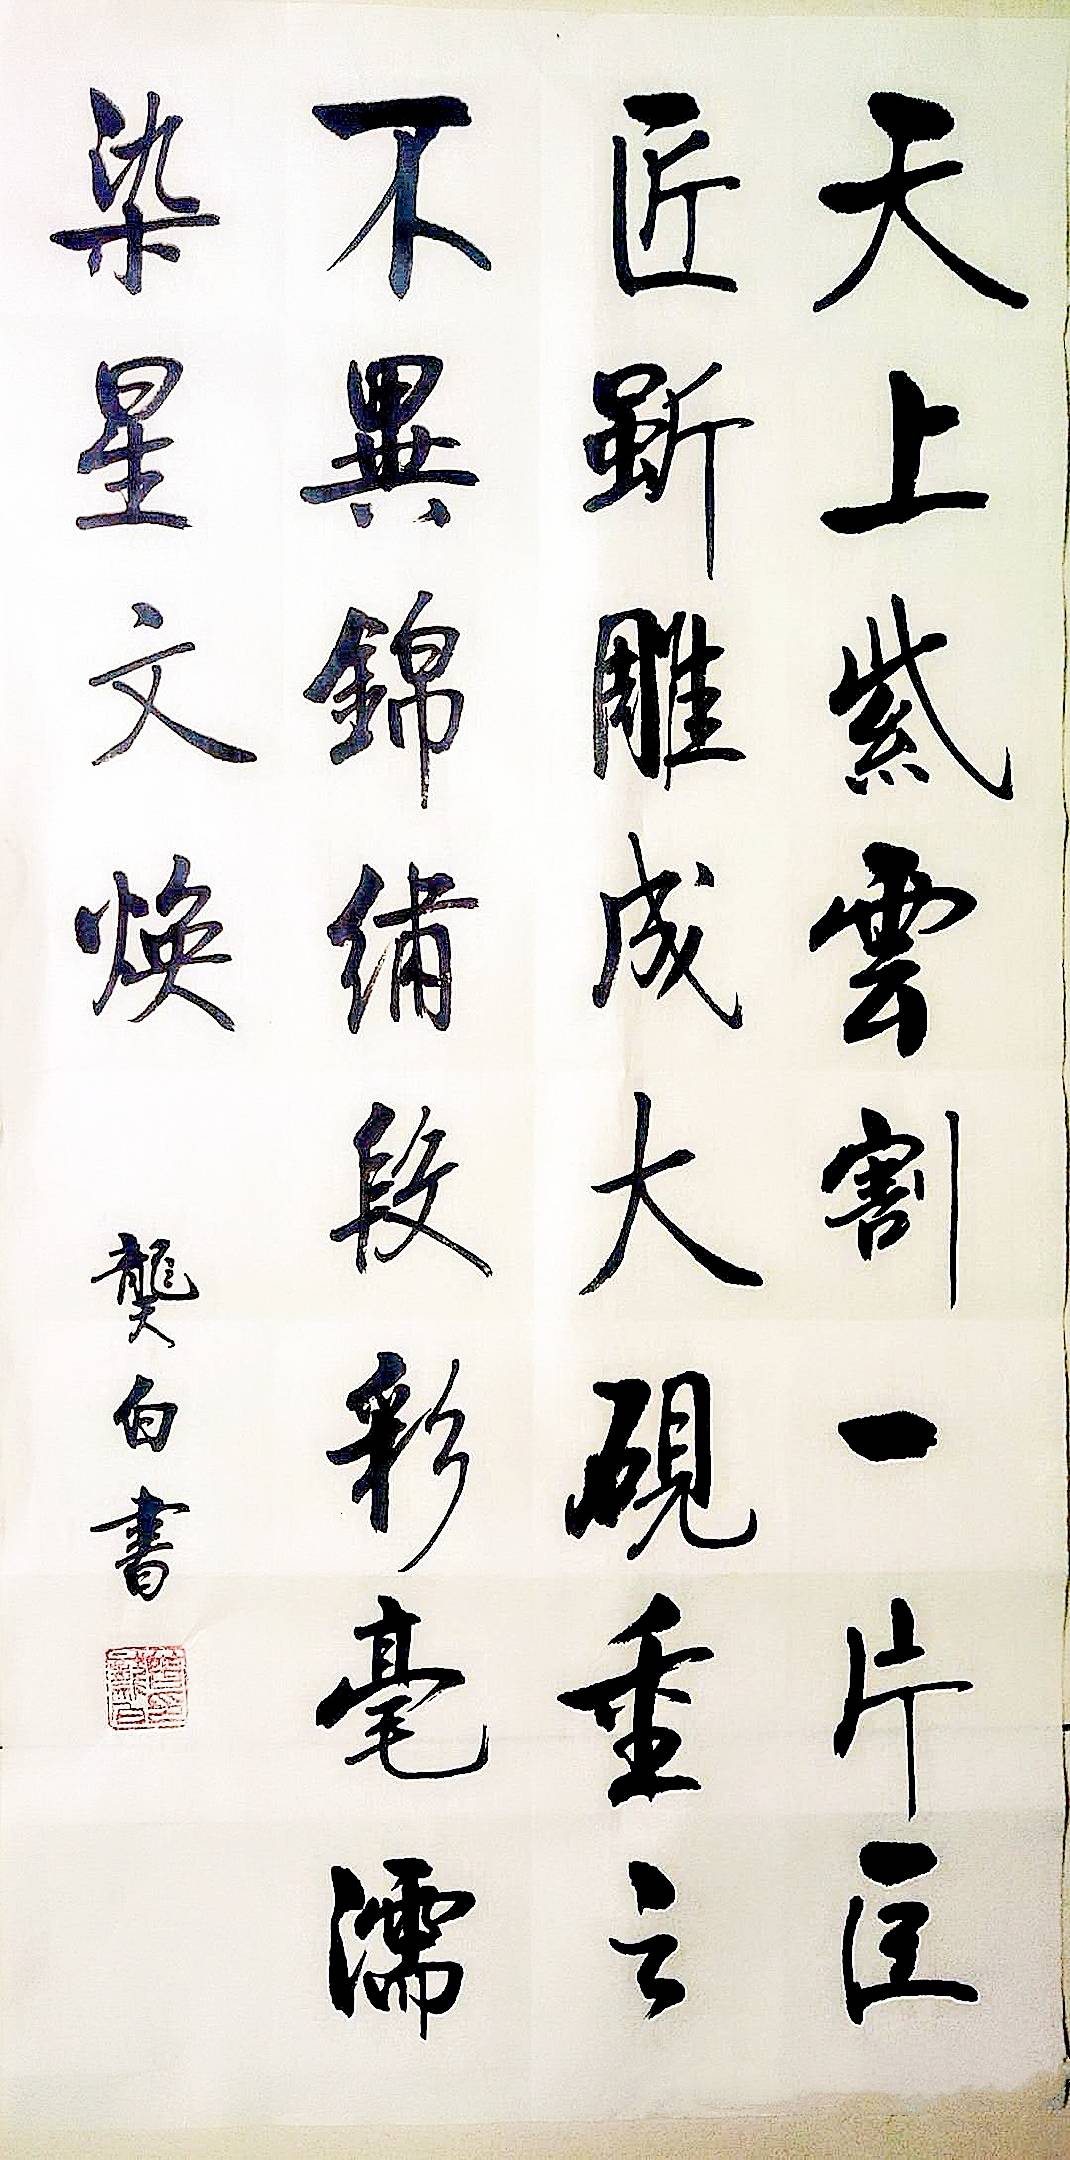 天上紫雲割一片巨
匠斲雕成大硯重之
不異錦繡段彩毫濡
染星文煥
龔白書